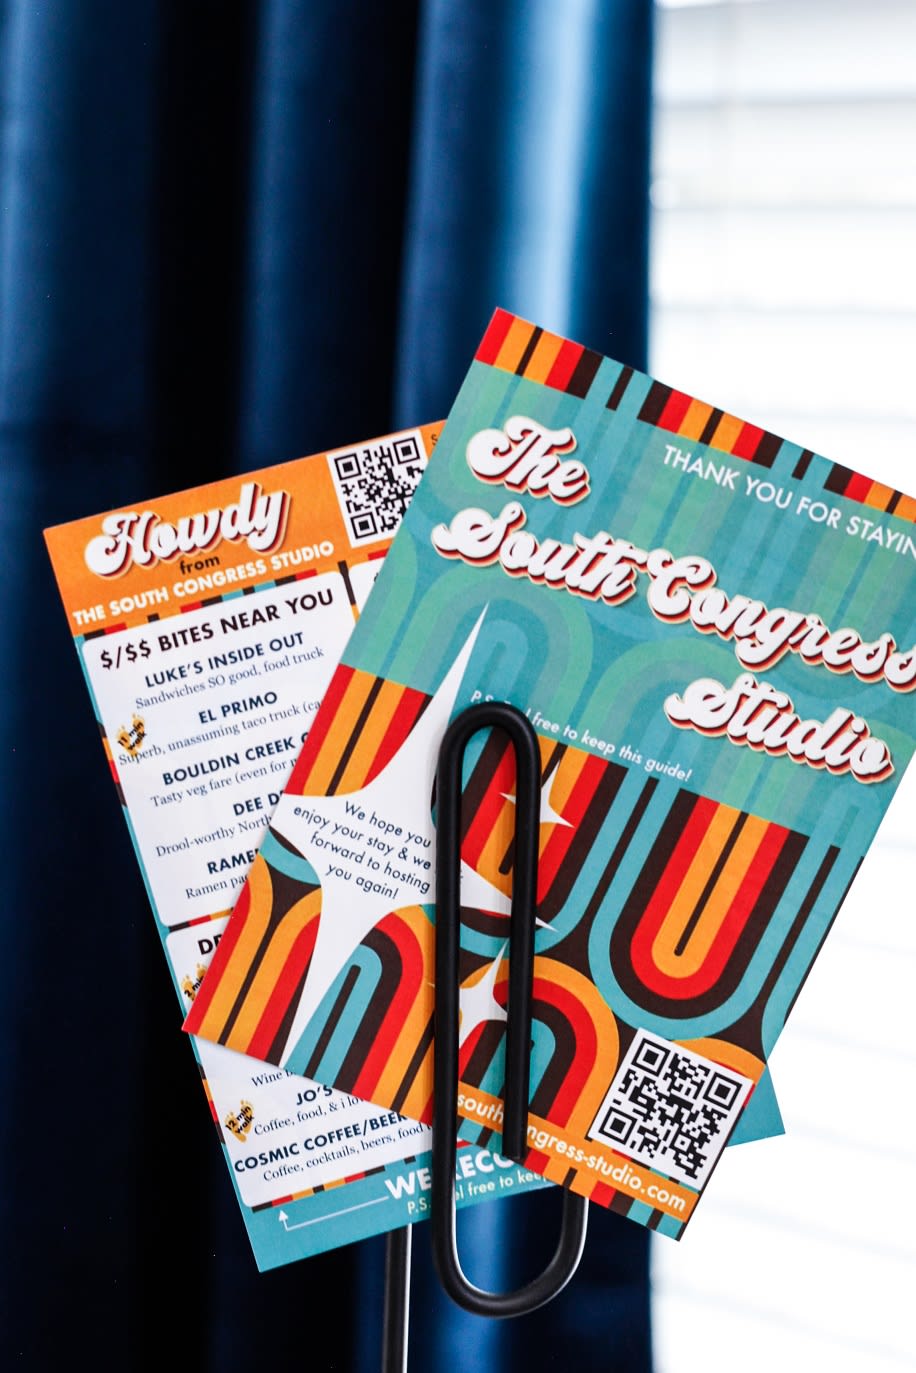 Howdy
from
THE SOUTH CONGRESS STUDIO
$/$$ BITES NEAR YOU
LUKE'S INSIDE OUT
Sandwiches SO good, food truck
EL PRIMO
Superb, unassuming taco truck
11 min
walk
BOULDIN CREEK
Tasty veg fare (even for
DEE
Drool-worthy North
Ramen
3 min
Wine
JO'S
Coffee, food, & i
12 min
walk
COSMIC COFFEE/BEER
Coffee, cocktails, beers, food
WE
P.S. free to keep
THANK YOU FOR STAYIN
The
South Congress
Studio
P.S. free to keep this guide!
We hope you
enjoy your stay & we
forward to hosting
you again!
south ngress-studio.com